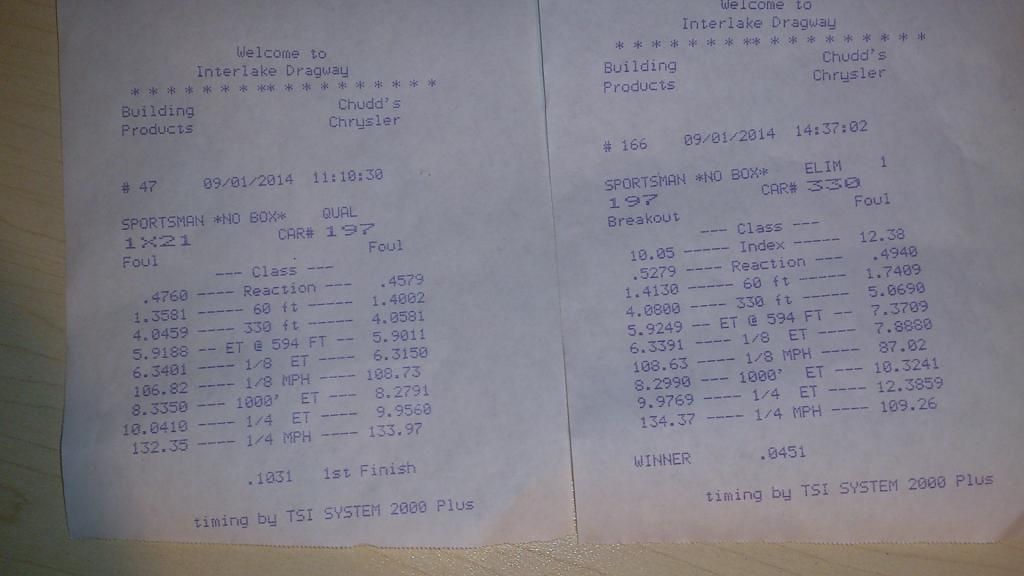 Welcome to
Interlake Dragway
* * * * * * * ** * * * * * * * * *
Building Chudd's
Products Chrysler
# 47 09/01/2014 11:10:30
SPORTSMAN *NO BOX* QUAL
1X21 CAR# 197
Foul Foul
--- Class ---
.4760 ---- Reaction --- .4579
1.3581 ---- 60 ft ----- 1.4002
4.0459 ---- 330 ft ---- 4.0581
5.9188 -- ET @ 594 FT -- 5.9011
6.3401 ---- 1/8 ET ---- 6.3150
106.82 ---- 1/8 MPH ---- 108.73
8.3350 --- 1000' ET --- 8.2791
10.0410 ---- 1/4 ET ---- 9.9560
132.35 ---- 1/4 MPH ---- 133.97
.1031 1st Finish
timing by TSI SYSTEM 2000 Plus
Welcome to
Interlake Dragway
* * * * * * * ** * * * * * * * * *
Building Chudd's
Products Chrysler
# 166 09/01/2014 14:37:02
SPORTSMAN *NO BOX* ELIM 1
197 CAR# 330
Breakout Foul
--- Class ---
10.05 ----- Index ----- 12.38
.5279 ---- Reaction ---- .4940
1.4130 ---- 60 ft ----- 1.7409
4.0800 ---- 330 ft ---- 5.0690
5.9249 -- ET @ 594 FT -- 7.3709
6.3391 ---- 1/8 ET ---- 7.8880
108.63 ---- 1/8 MPH ---- 87.02
8.2990 --- 1000' ET --- 10.3241
9.9769 ---- 1/4 ET ---- 12.3859
134.37 ---- 1/4 MPH ---- 109.26
WINNER .0451
timing by TSI SYSTEM 2000 Plus